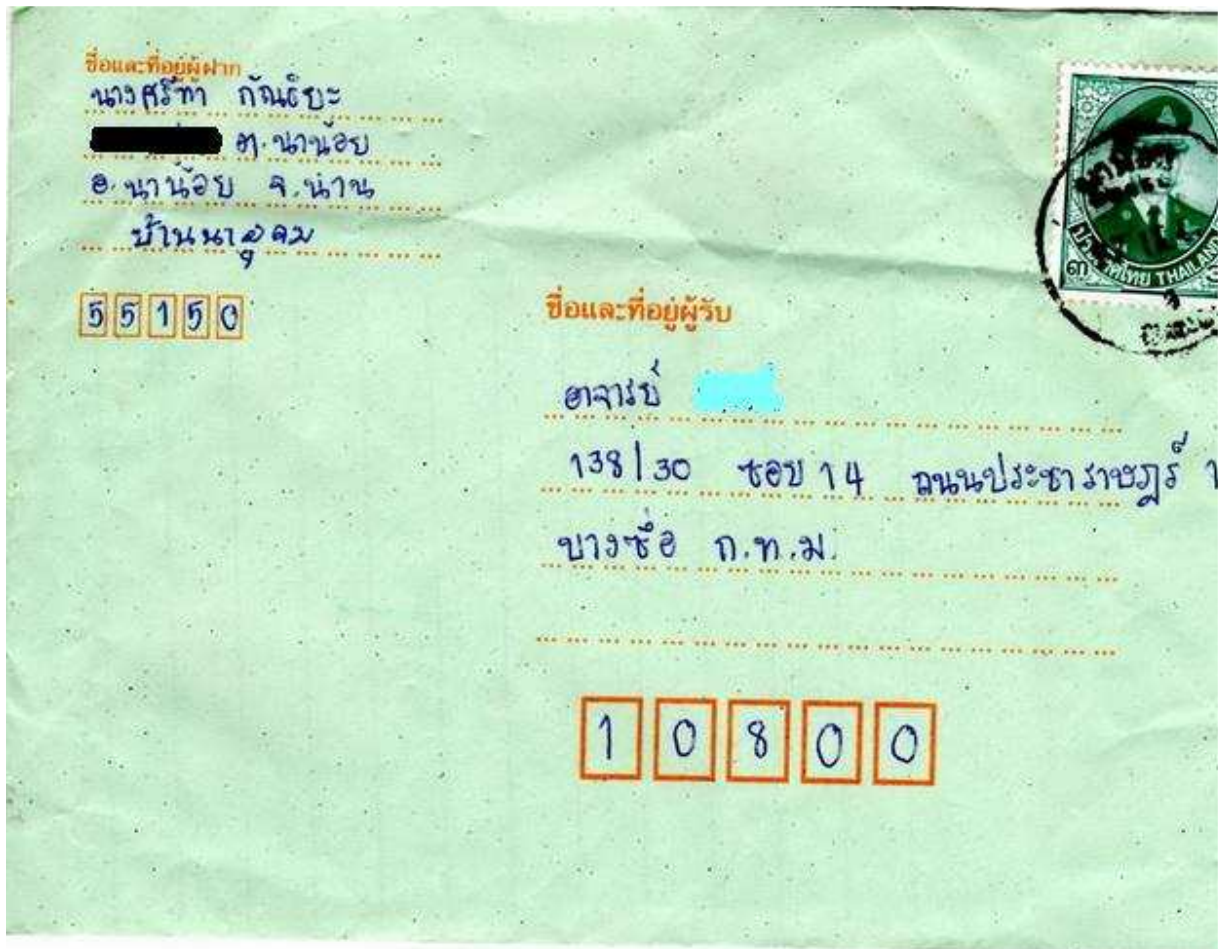 ชื่อและที่อยู่ผู้ฝาก
นางศรีทา กันธิยะ
ต.นาน้อย
อ.นาน้อย จ.น่าน
บ้านนาอุดม
55150
ประเทศไทย THAILAND
๓
ชื่อและที่อยู่ผู้รับ
อาจารย์
138/30 ซอย 14 ถนนประชาราษฎร์ 1
บางซื่อ ก.ท.ม.
10800